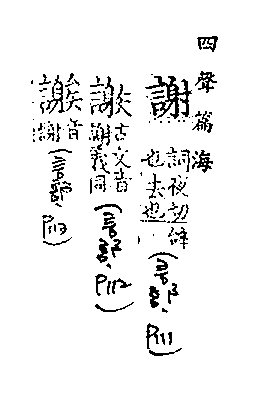 四聲篇海
謝
詞夜切
也去也
(言部、P111)
古文音
謝義同
(言部、P112)
音
謝
(言部、P113)